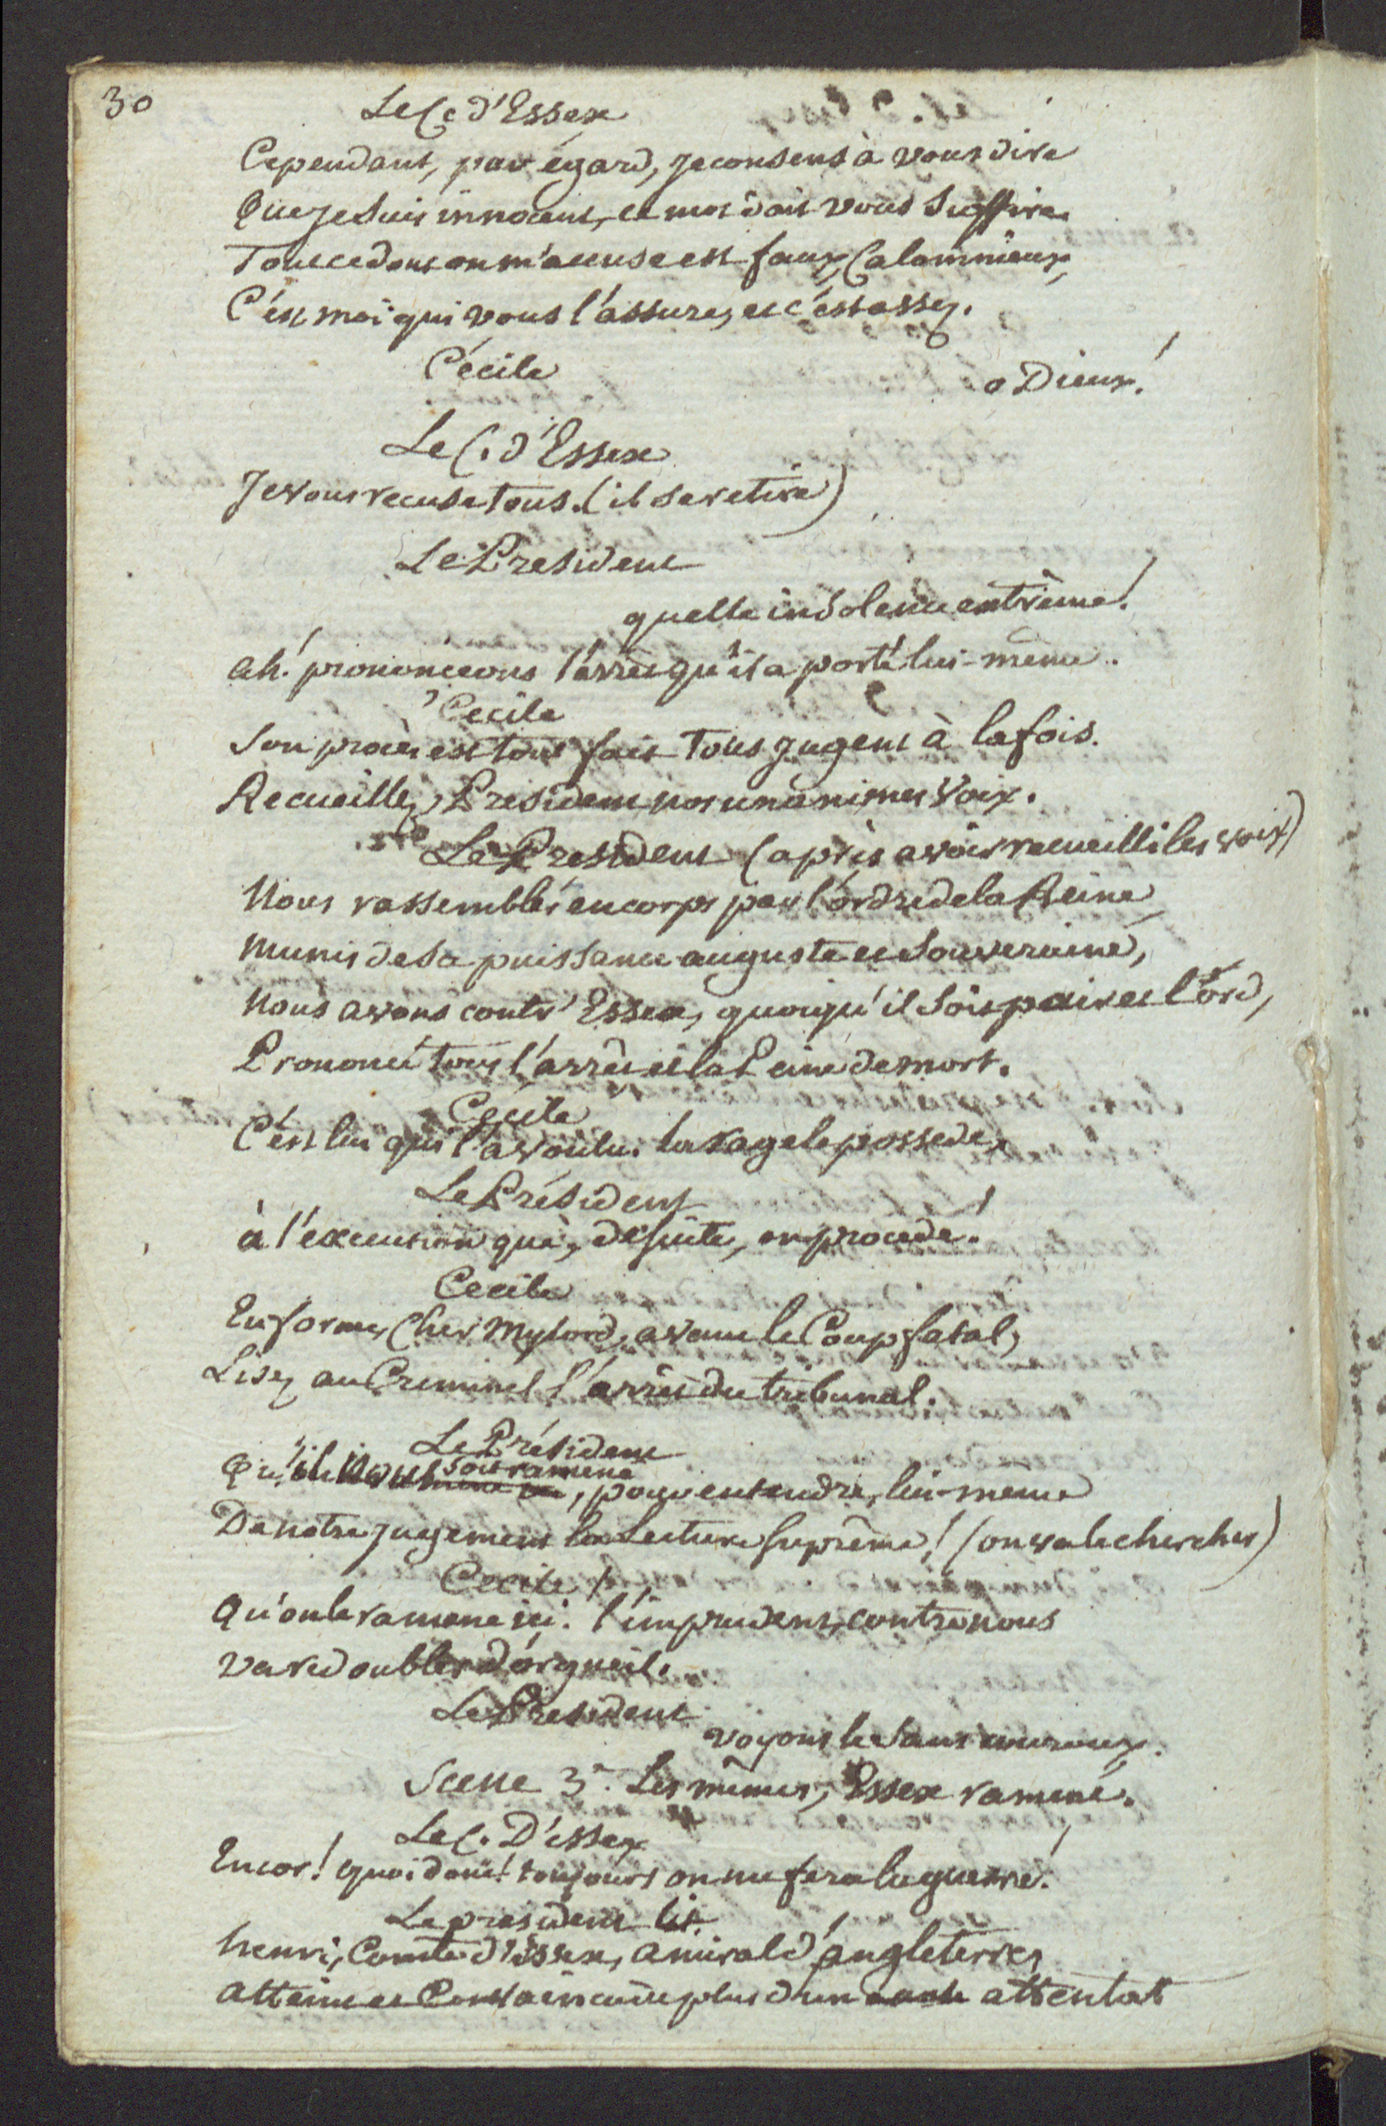 30
Le C. d'Essex
Cependant, par égard, je consens à vous dire
Que je suis innocent, ce mot doit vous suffire.
Tout ce dont on m'accuse est faux, Calomnieux,
C'est moi qui vous l'assure, et c'est assez.
Cécile
o Dieux!
Le C. d'Essex
Je vous recuse tous. (il se retire)
Le President
quelle insolence extrême!
ah! prononceons l'arrêt qu'il a porté lui-même.
Cecile
Son procès est tout fait Tous jugent à la fois.
Recueillez, President, nos unanimes Voix.
Le President (après avoir recueilli les voix)
Nous rassemblés en corps par l'ordre de la Reine
Munis de sa puissance auguste et Souveraine,
Nous avons contr' Essex, quoiqu'il soit pair et Lord,
Prononcé tous l'arrêt et la Peine de mort.
Cecile
C'est lui qui l'a voulu. la rage le possede,
Le Président
à l'execution que, de suite, on procede!
Cecile
En forme, Cher Mylord, avant le Coup fatal,
Lisez au Criminel l'arrêt du tribunal.
Le Président
Qu'il nous soit ramené, pour entendre, lui-meme
De notre jugement la Lecture suprême! (on va le chercher)
Cecile
Qu'on le ramene ici. l'imprudent, contre nous
Va redoubler d'orgueil.
Le President
voyons le sans courroux.
Scene 3e. Les mêmes, Essex ramené.
Le C. D'essex
Encor! quoi donc! toujours on me fera la guerre!
Le president lit.
henri, Comte d'Essex, amiral d'angleterre,
Atteint et Convaincu de plus d'un attentat